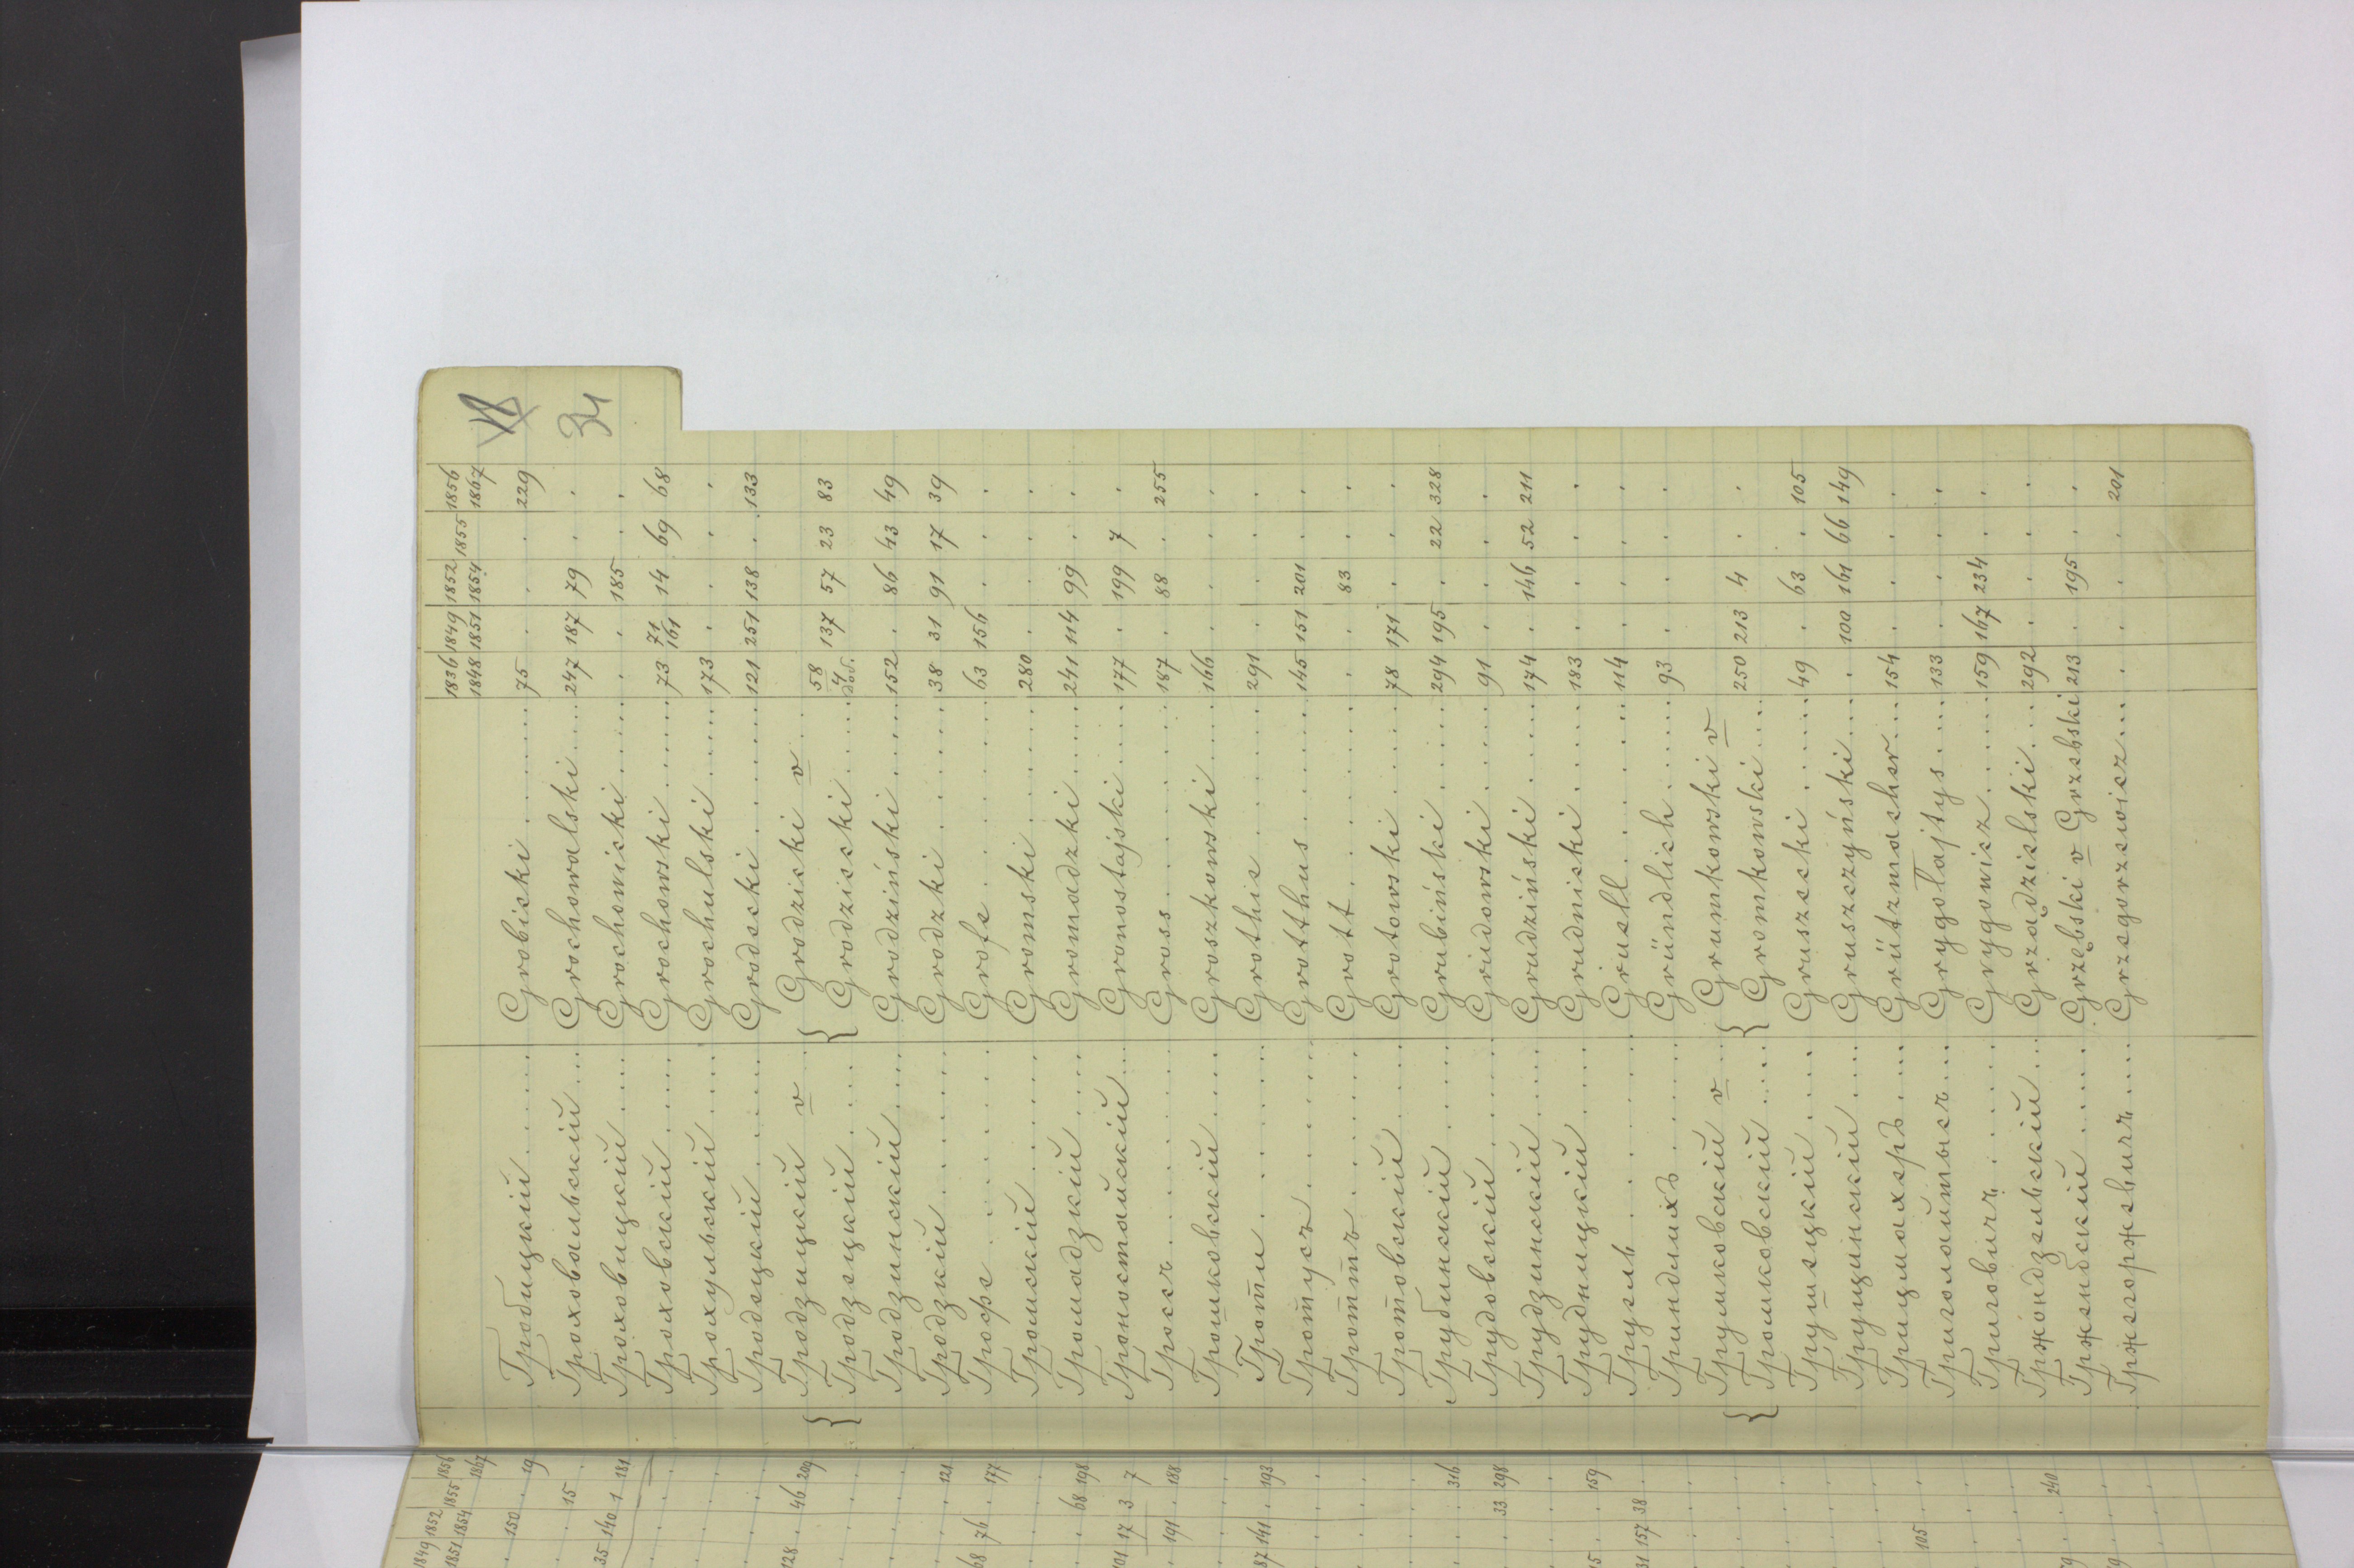 34
1836 1849 1852 1855 1856
1848 1851 1854 1867
Гробицкій Grobicki 75 . . . 229
Гроховальскій Grochowalski 247 187 79 . .
Гроховицкій Grochowicki . . 185 . .
Гроховскій Grochowski 73 71 161 14 69 68
Грохульскій Grochulski 173 . . . .
Гродецкій Grodecki 121 251 138 . 133
{ Гродзицкій v { Grodzicki v
Гродзецкій Grodziecki 58 4 137 57 23 83
Гродзинскій Grodziński 152 . 86 43 49
Гродзкій Grodzki 38 31 91 17 39
Грофе Grofe 63 156 . . .
Громскій Gromski 280 . . . .
Громадзкій Gromadzki 241 114 99 . .
Гроностайскій Gronostajski 177 . 199 7 .
Гроссъ Gross 187 . 88 . 255
Грошковскій Groszkowski 166 . . . .
Гроти Grothie 291 . . . .
Гротусъ Grotthus 145 151 201 . .
Гроттъ Grott . . 83 . .
Гротовскій Grotowski 78 171 . . .
Грубинскій Grubiński 294 195 . 22 328
Грудовскій Grudowski 91 . . . .
Грудзинскій Grudziński 174 . 146 52 211
Грудницкій Grudnicki 183 . . . .
Груель Gruell 114 . . . .
Гриндлихъ Gründlich 93 . . . .
{ Грумковскій v { Grumkowski v
Громковскій Gromkowski 250 213 4 . .
Грушецкій Gruszecki 49 . 63 . 105
Грущинскій Gruszczyński . 100 161 66 149
Грицмахеръ Grützmacher 154 . . . .
Григолайтысъ Grygołajtys 133 . . . .
Григовичъ Grygowicz 159 167 234 . .
Гржондзельскій Grządzielski 292 . . . .
Гржембскій Grzębski v Grzebski 213 . 195 . .
Гржегоржевичъ Grzegorzewicz . . . . 201
1849 1852 1855 1856
1851 1854 1867
150 . 19
. 15 .
35 140 1 181
128 . 46 209
. . . 121
68 76 . 177
. . 68 198
101 17 3 7
. 191 . 188
87 141 . 193
. . . 316
. . 33 298
15 . . 159
31 157 38 .
. 105 . .
. . 240 .